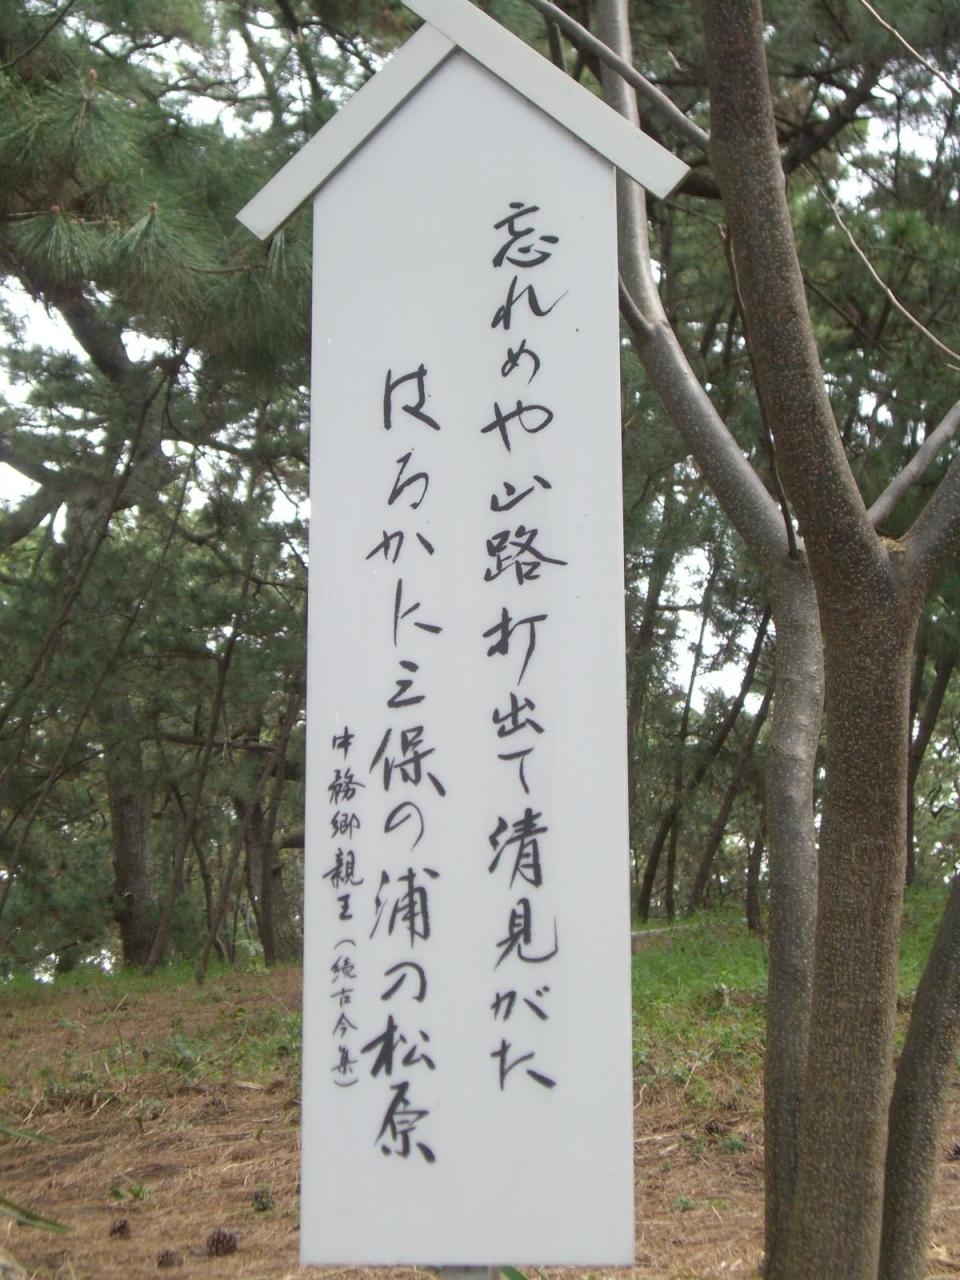 忘れめや山路打出て清見がた
はるかに三保の浦の松原
中務郷親王(続古今集)